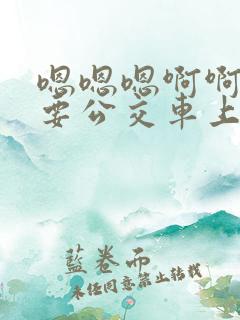 嗯嗯嗯啊啊
要公交車上
藍卷而
未任同意禁止轉載